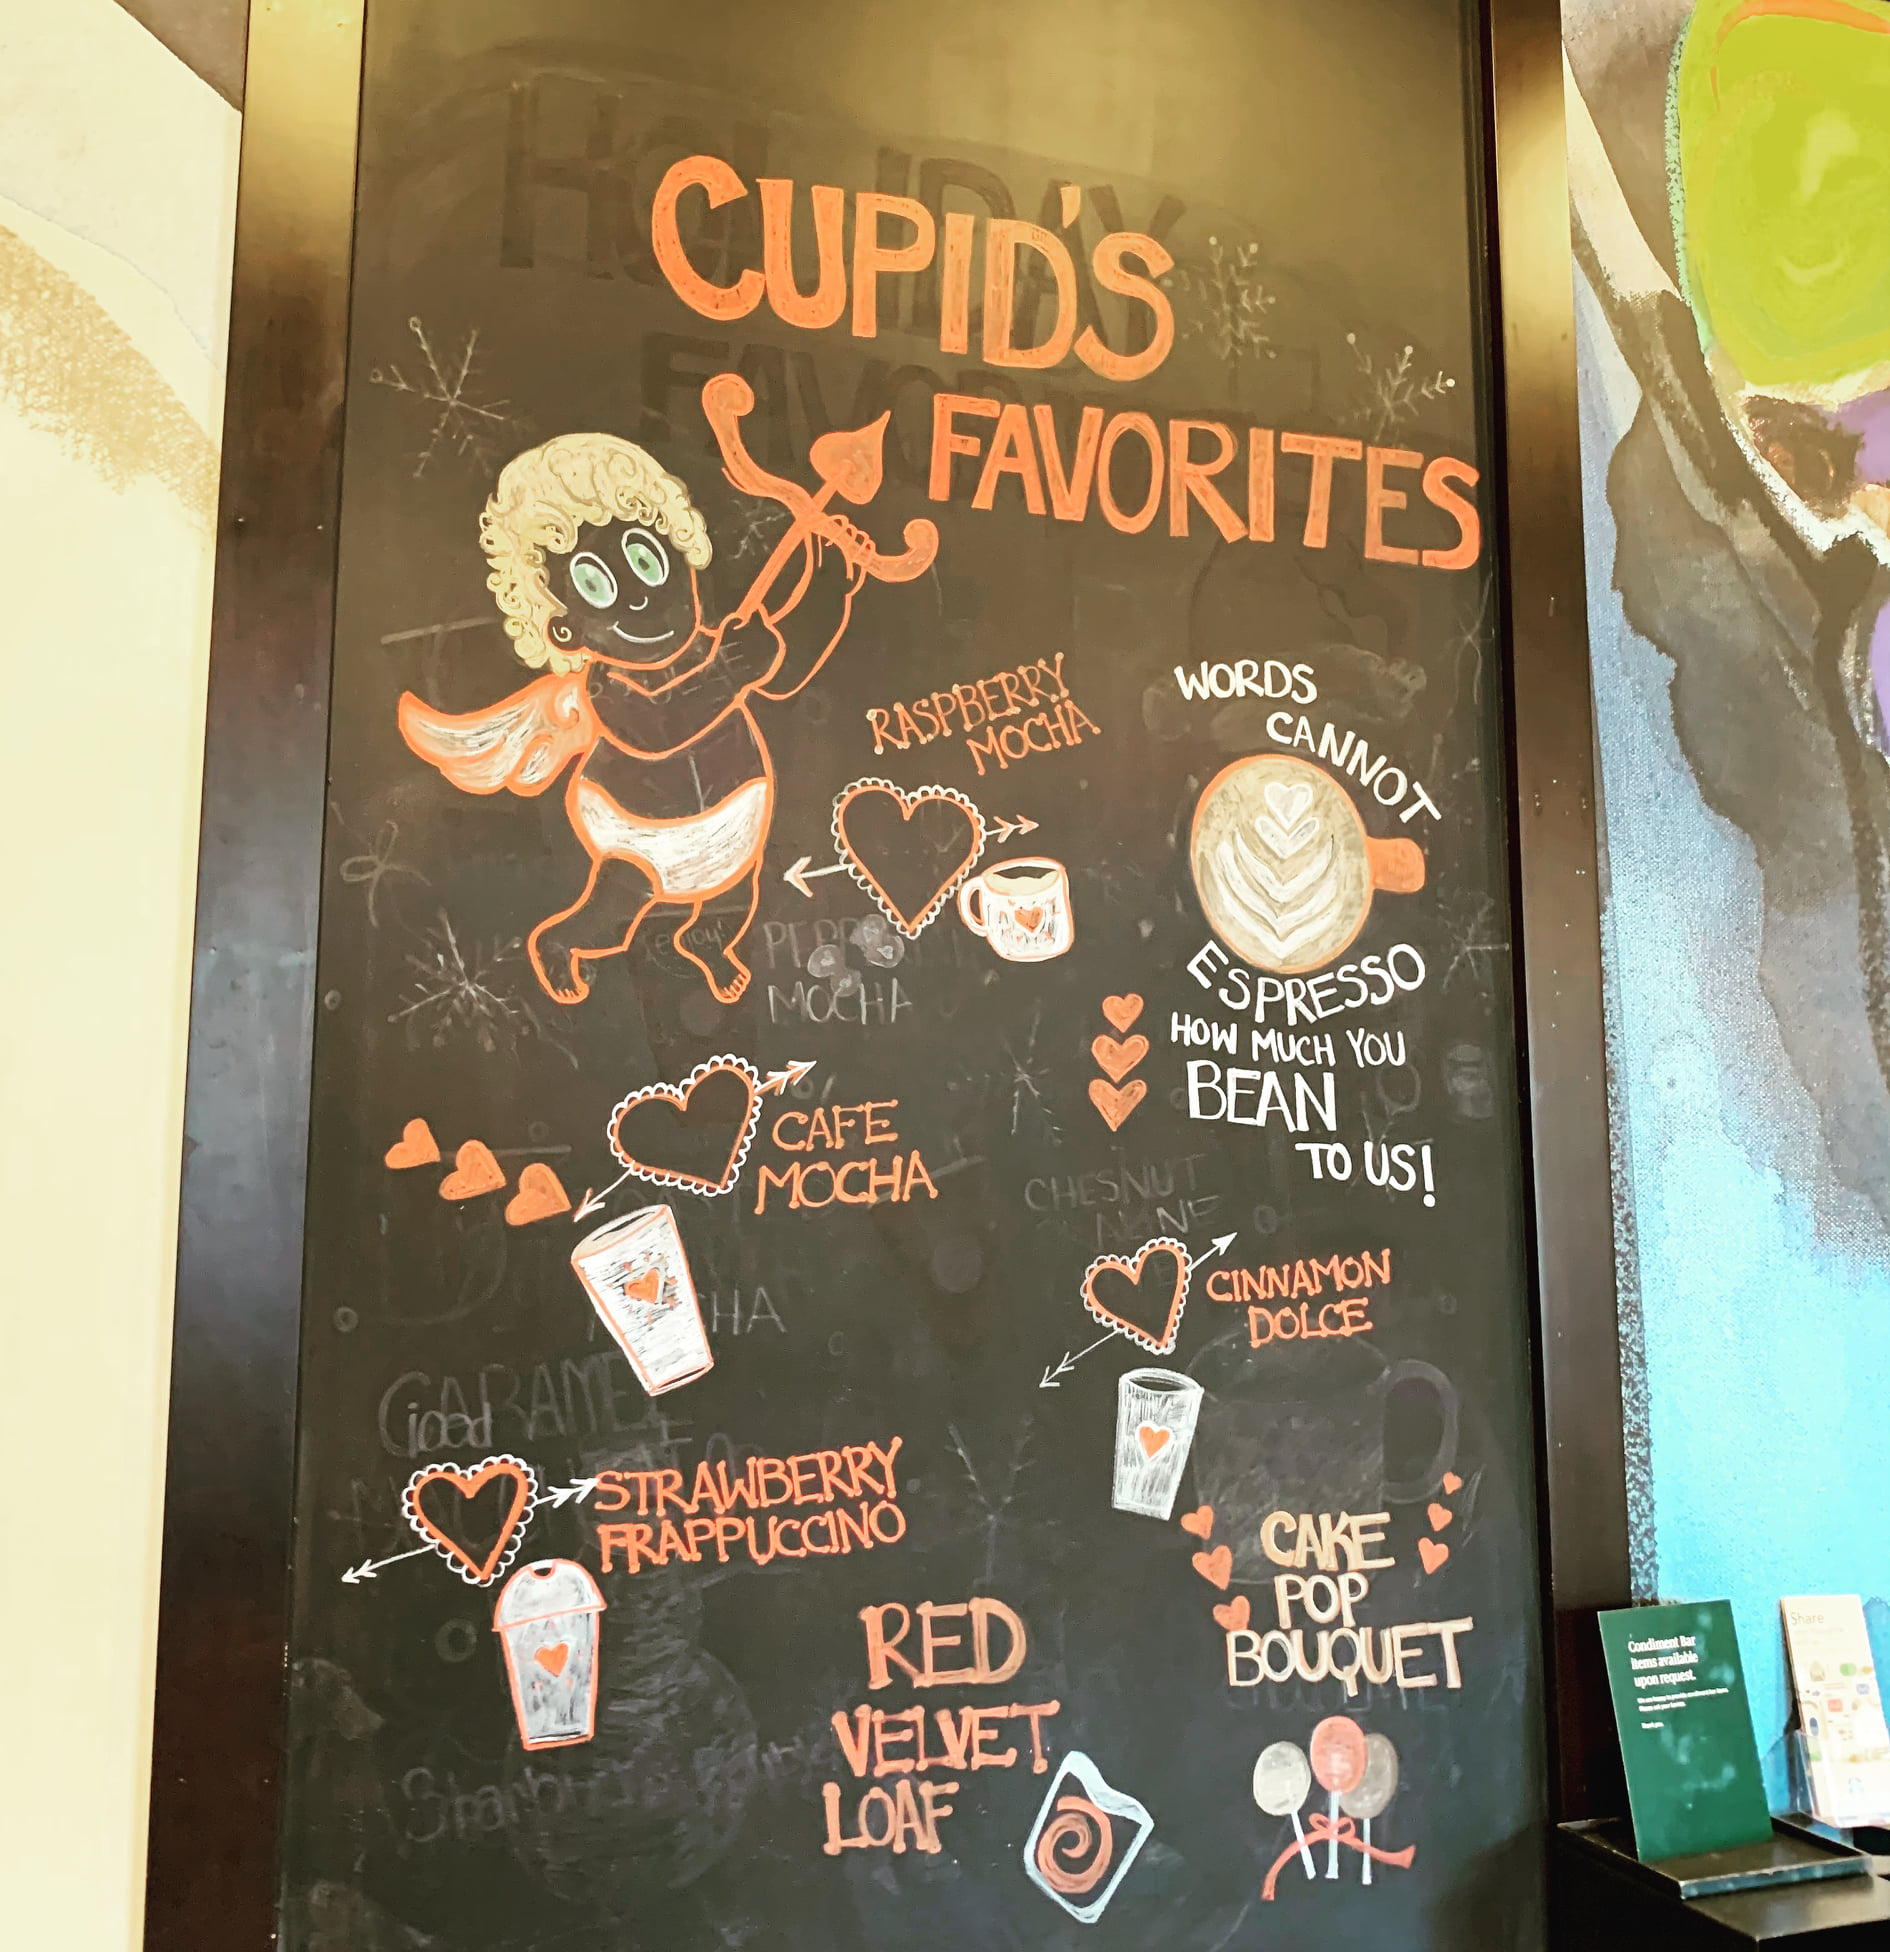 CUPID'S
FAVORITES
RASPBERRY
MOCHA
WORDS
CANNOT
ESPRESSO
HOW MUCH YOU
BEAN
TO US!
CAFE
MOCHA
CINNAMON
DOLCE
STRAWBERRY
FRAPPUCCINO
CAKE
POP
BOUQUET
RED
VELVET
LOAF
HOLIDAY
FAVORITES
MOCHA
CHESNUT
CARAMEL
Good
Condiment Bar
items available
upon request.
Share